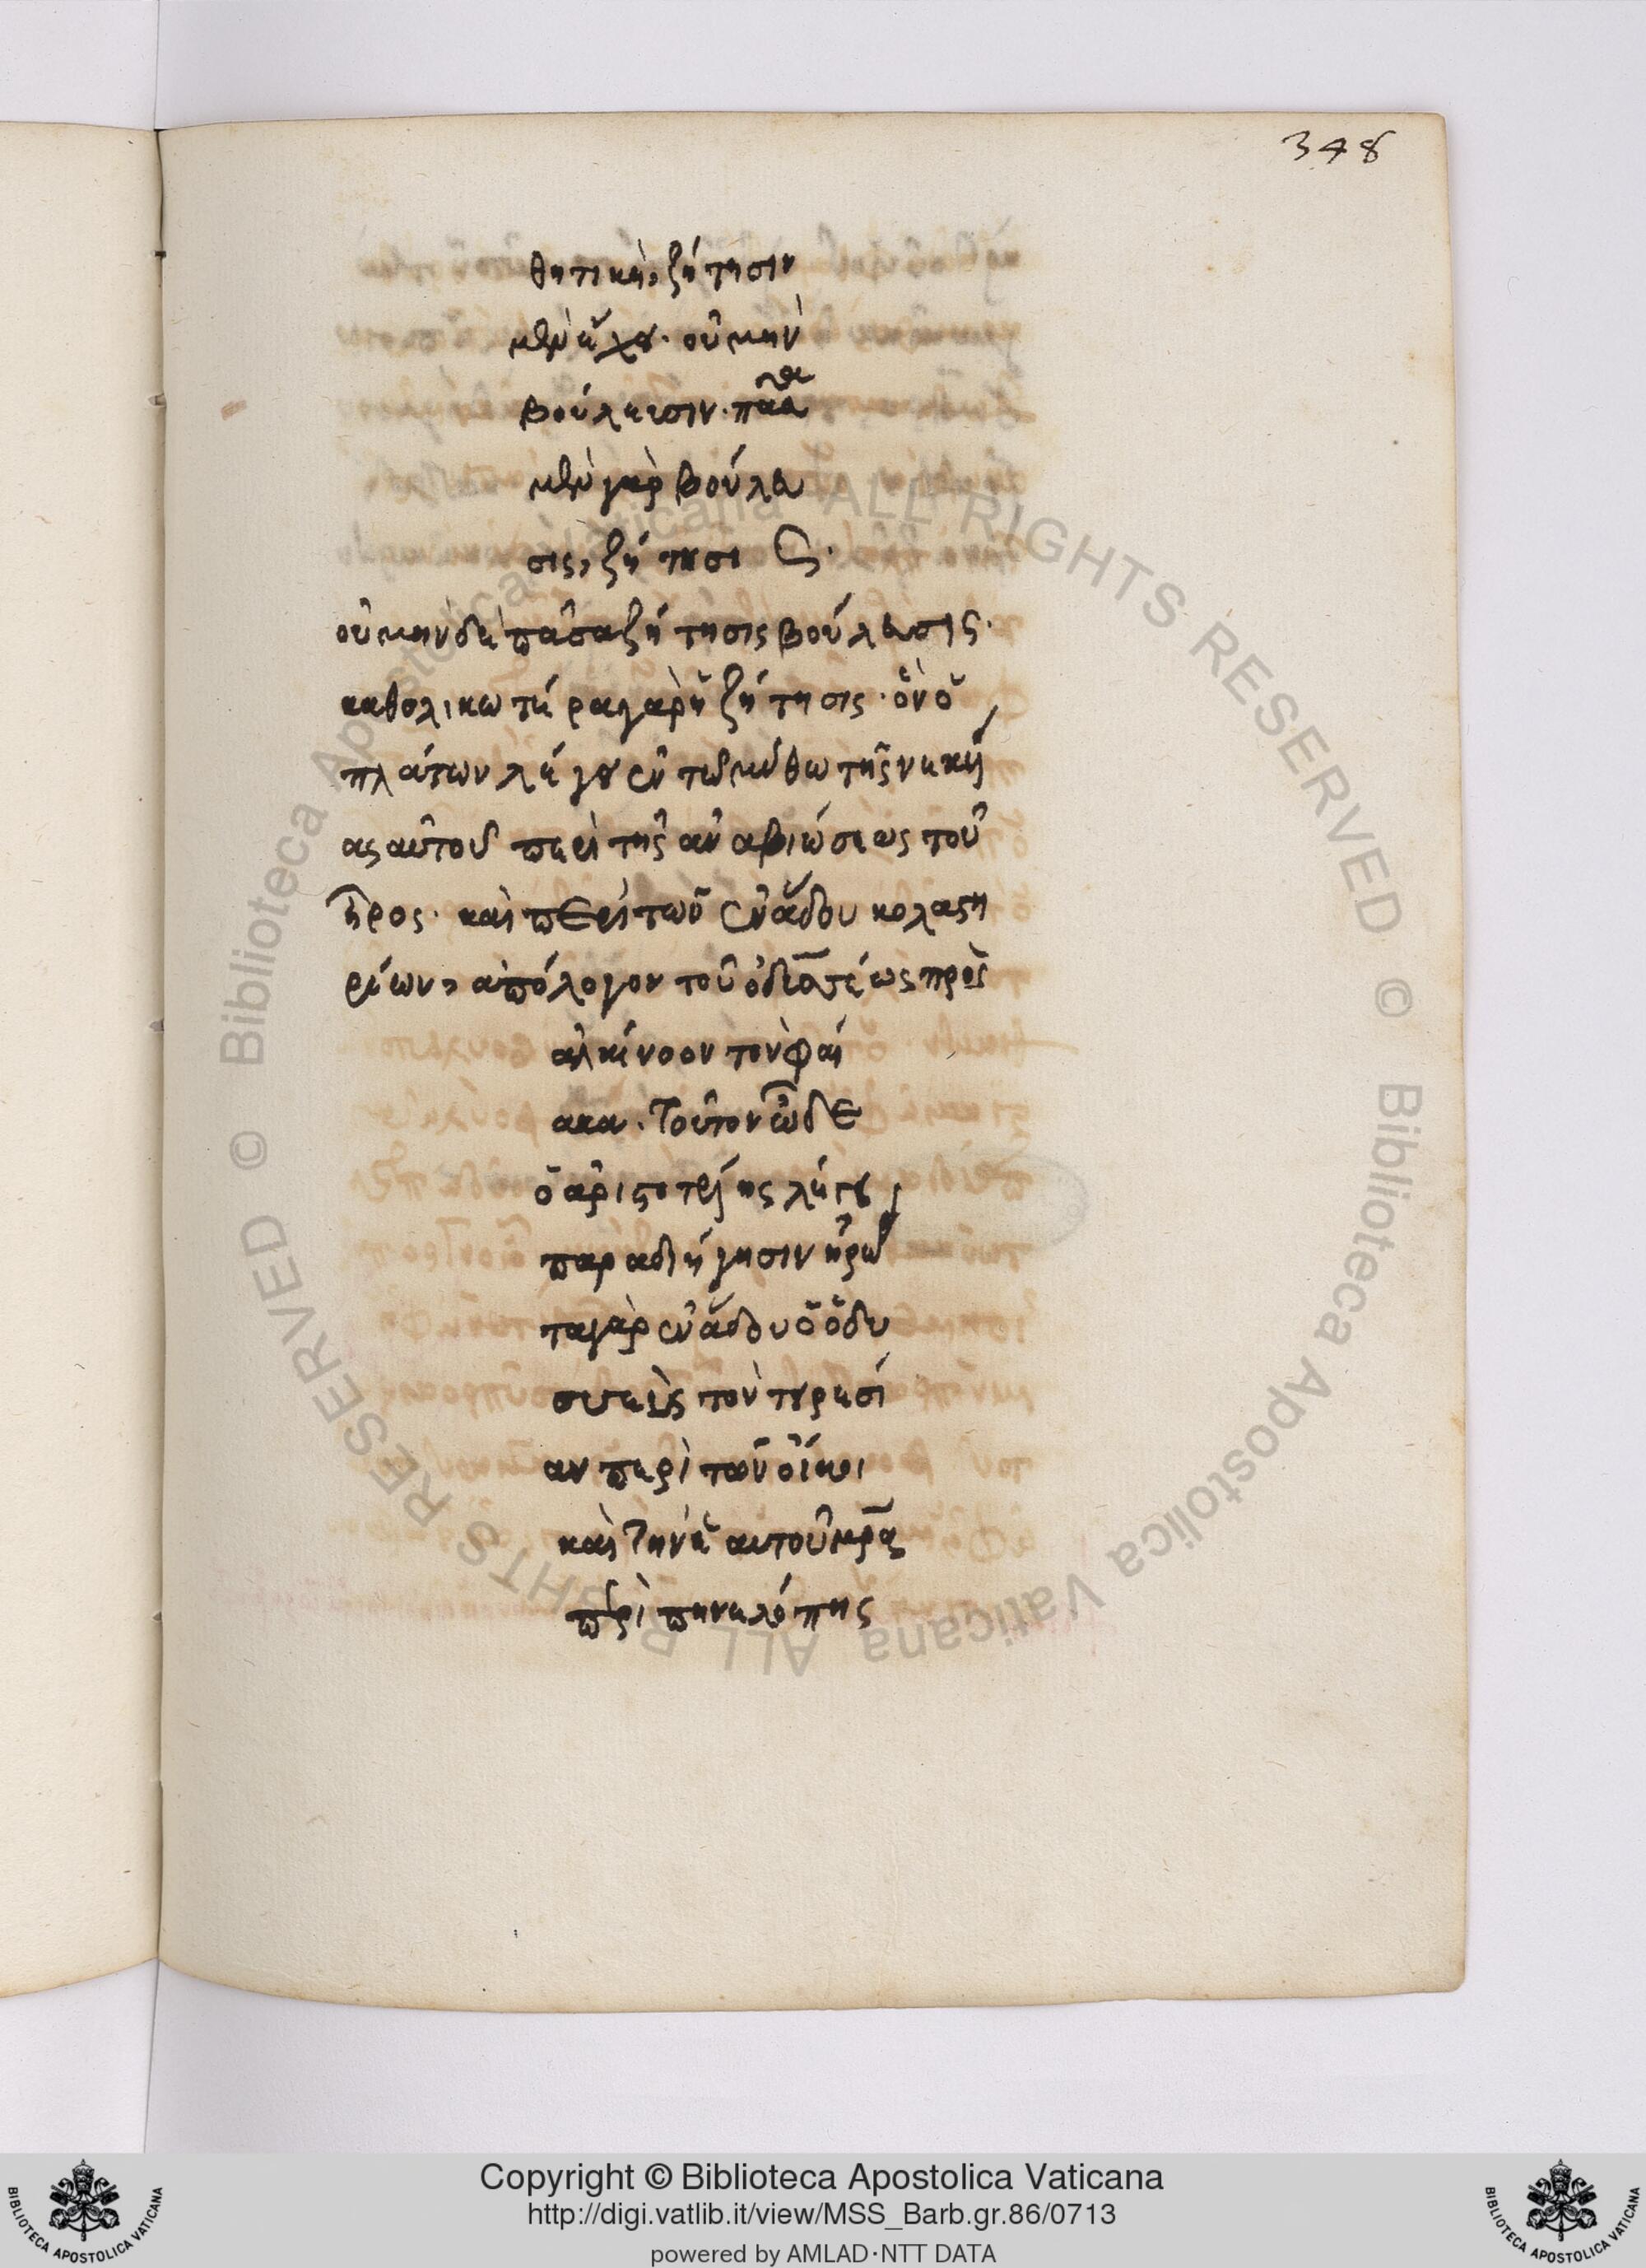 348
θητικὴ, ζήτησιν
μὲν ἔχει. οὐ μὴν
βούλευσιν. πᾶσα
μὲν γὰρ βούλευ
σις, ζήτησί ς.
οὐ μὴν δὲ πᾶσα ζήτησις βούλευσις.
καθολικωτέρα γὰρ ἡ ζήτησις. ὃν ὁ
πλάτων λέγει ἐν τῶ μύθω τῆς νεκυί
ας αὐτοῦ περὶ τῆς ἀναβιώσεως τοῦ
ἠρος. καὶ περὶ τῶν ἐν ἅδου κολαστη
ρίων, ἀπόλογον τοῦ ὀδυσσέως πρὸς
ἀλκίνοον τὸν φαί
ακα. Τοῦτον ὧδε
ὁ ἀριστοτέλης λέγει
παραδιήγησιν ἠρώ
τα γὰρ ἐν ἅδου ὁ ὀδυ
σσεὺς τὸν τειρεσί
αν περὶ τῶν οἴκοι
καὶ τὴν ἑαυτοῦ μητέρα
περὶ πηνελόπης
Copyright © Biblioteca Apostolica Vaticana
http://digi.vatlib.it/view/MSS_Barb.gr.86/0713
powered by AMLAD·NTT DATA
BIBLIOTECA APOSTOLICA VATICANA
BIBLIOTECA APOSTOLICA VATICANA
© Biblioteca Apostolica Vaticana ALL RIGHTS RESERVED
© Biblioteca Apostolica Vaticana ALL RIGHTS RESERVED